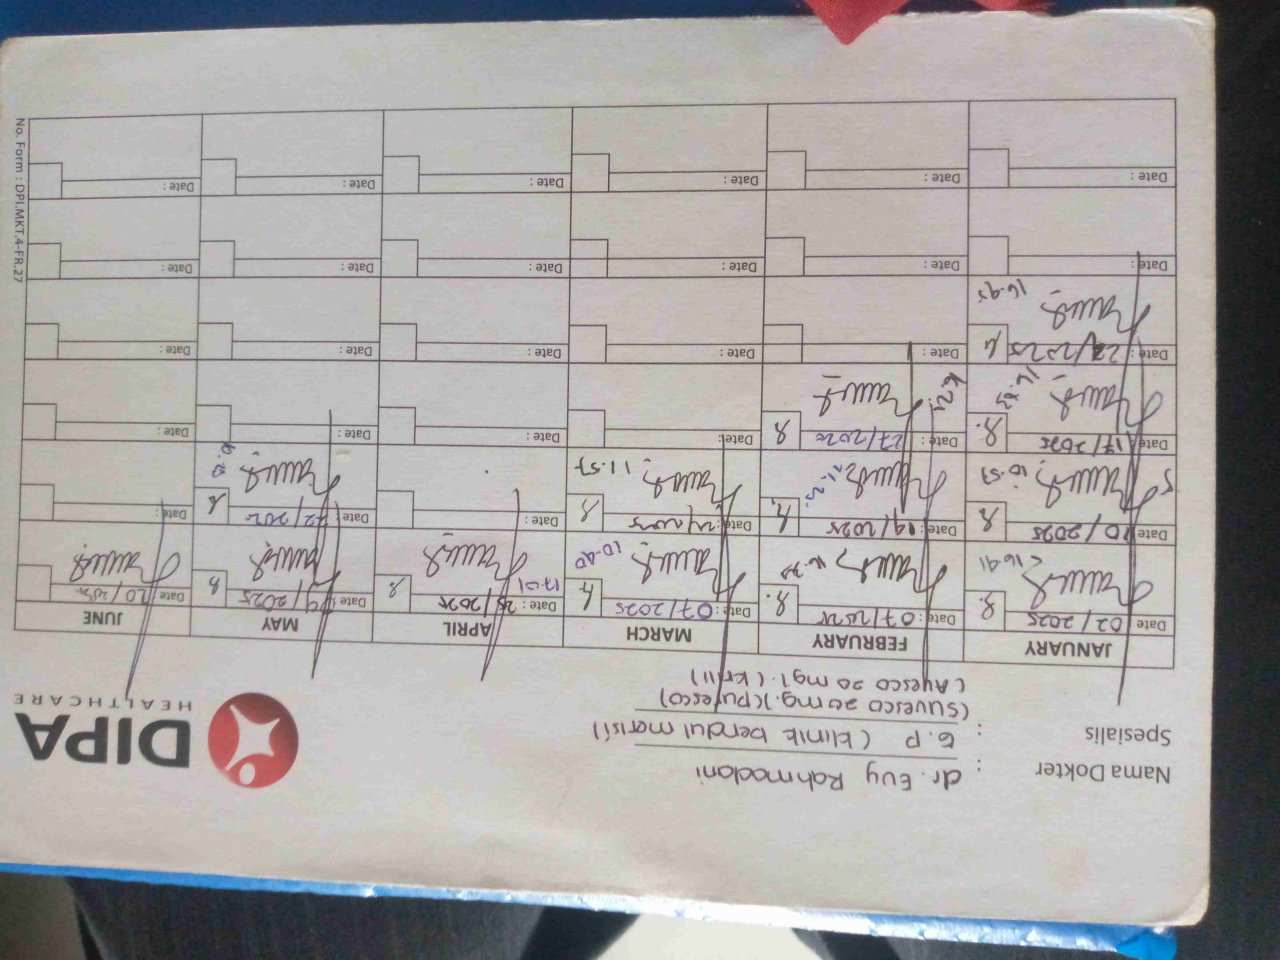 DIPA
HEALTHCARE
Nama Dokter : dr. Evy Rahmadani
Spesialis : G.P (klinik bendul merisi)
(Suvesco 20 mg.) (puresco)
(Avesco 20 mg). (krill)
JANUARY FEBRUARY MARCH APRIL MAY JUNE
Date : 02/2025 Date : 07/2025 Date : 07/2025 Date : 25/2025 Date : 19/2025 Date : 20/2025
16.41 10.40 17.01
Date : 10/2025 Date : 19/2025 Date : 24/2025 Date : Date : 22/202 Date :
10.57 11.57
Date : 17/2025 Date : 27/2025 Date : Date : Date : Date :
Date : 22/2025 Date : Date : Date : Date : Date :
16.45
Date : Date : Date : Date : Date : Date :
Date : Date : Date : Date : Date : Date :
No. Form : DPI.MKT.4-FR.27